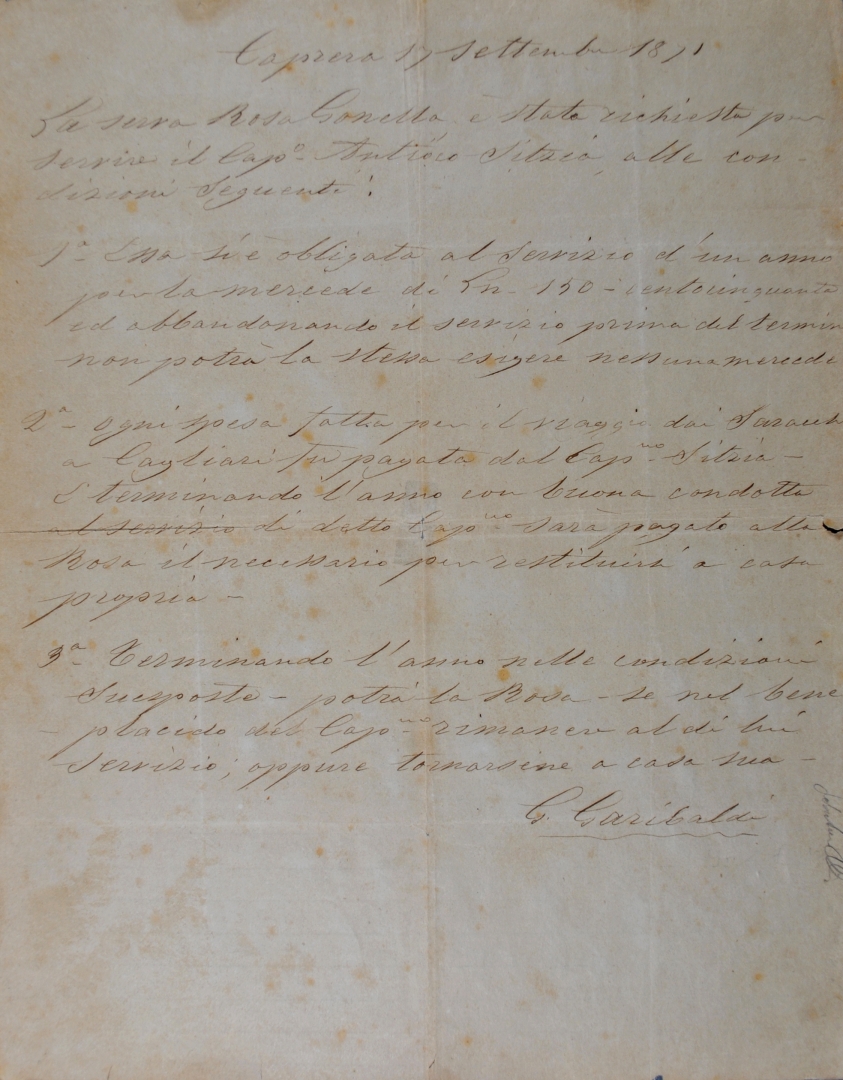 Caprera 17 Settembre 1871
La serva Rosa Gonella è stata richiesta per
servire il Cap.º Antioco Sitzia, alle con-
dizioni Seguenti:
1ª- Essa si è obligata al Servizio d'un anno
per la mercede di Ln. 150 - centocinquanta
ed abbandonando il servizio prima del termin
non potrà la stessa esigere nessuna mercede
2ª- Ogni spesa fatta per il viaggio dai
a Cagliari fu pagata dal Cap.no Sitzia -
E terminando l'anno con buona condotta
al servizio di detto Cap.no sarà pagato alla
Rosa il necessario per restituirsi a casa
propria -
3ª- Terminando l'anno nelle condizioni
Suesposte - potrà la Rosa - se nel bene
- placido del Cap.no rimaner al di lui
Servizio; oppure tornarsene a casa sua -
G. Garibaldi